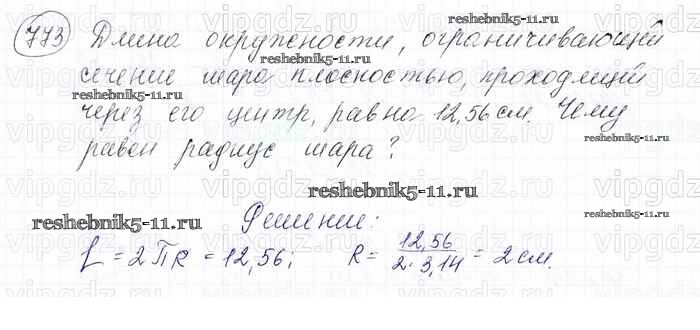 773 Длина окружности, ограничивающей
сечение шара плоскостью, проходящей
через его центр, равна 12,56 см. Чему
равен радиус шара?
Решение:
L = 2πR = 12,56; R = 12,56 / 2·3,14 = 2 см.
reshebnik5-11.ru
reshebnik5-11.ru
reshebnik5-11.ru
reshebnik5-11.ru
reshebnik5-11.ru
reshebnik5-11.ru
vipgdz.ru